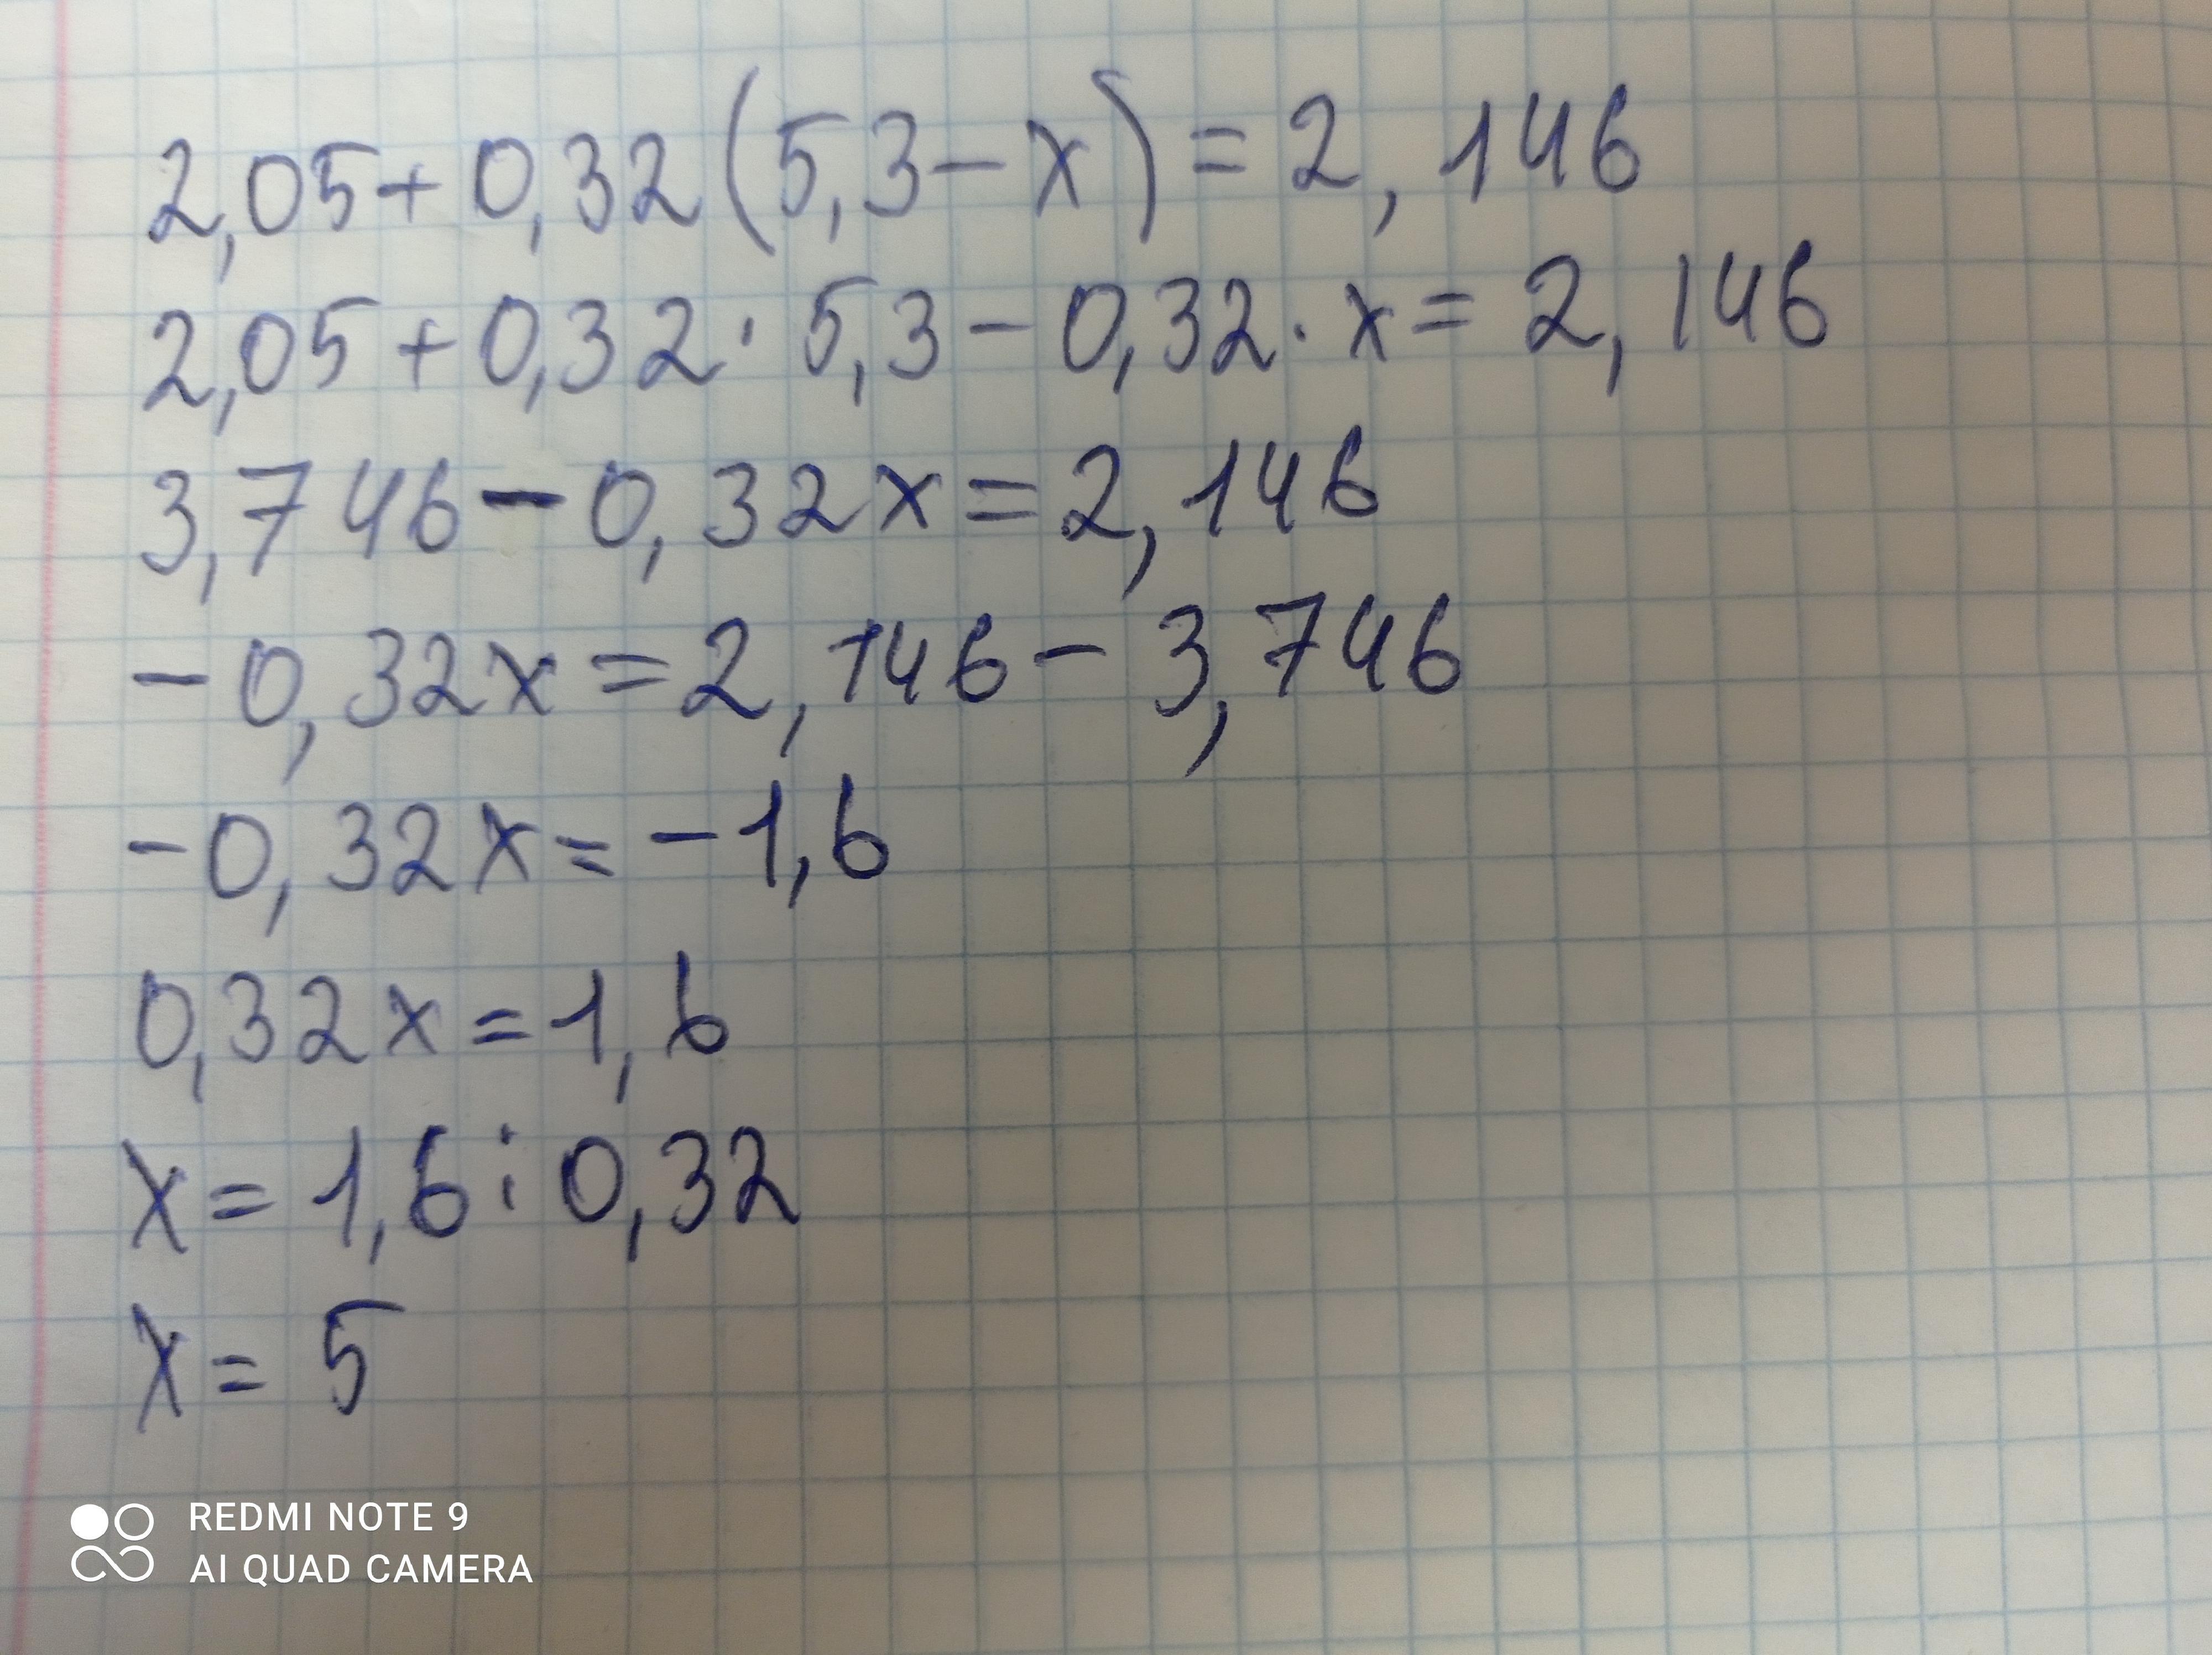 2,05+0,32(5,3-x)=2,146
2,05+0,32·5,3-0,32·x=2,146
3,746-0,32x=2,146
-0,32x=2,146-3,746
-0,32x=-1,6
0,32x=1,6
x=1,6:0,32
x=5
REDMI NOTE 9
AI QUAD CAMERA